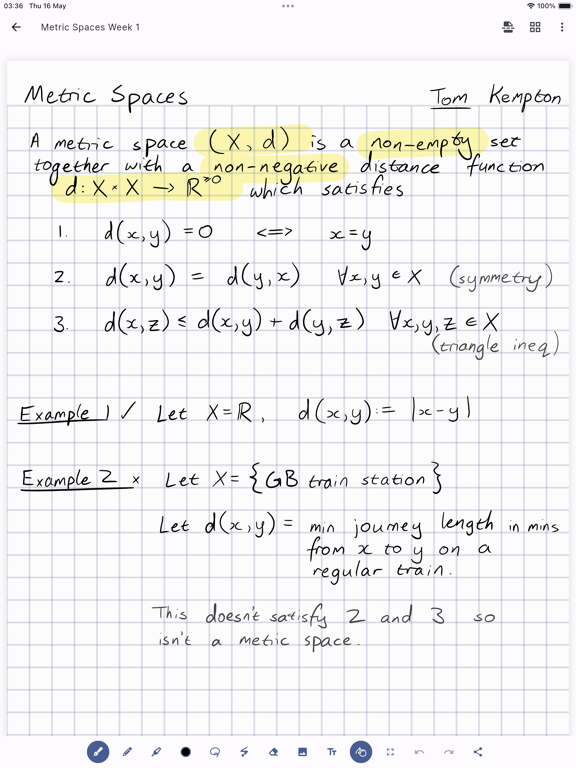 03:36 Thu 16 May
100%
Metric Spaces Week 1
Metric Spaces Tom Kempton
A metric space (X, d) is a non-empty set
together with a non-negative distance function
d: X × X → ℝ^≥0 which satisfies
1. d(x,y) = 0 <=> x = y
2. d(x,y) = d(y,x) ∀x,y ∈ X (symmetry)
3. d(x,z) ≤ d(x,y) + d(y,z) ∀x,y,z ∈ X
(triangle ineq)
Example 1 ✓ Let X = ℝ, d(x,y) := |x-y|
Example 2 × Let X = {GB train station}
Let d(x,y) = min journey length in mins
from x to y on a
regular train.
This doesn't satisfy 2 and 3 so
isn't a metric space.
TT